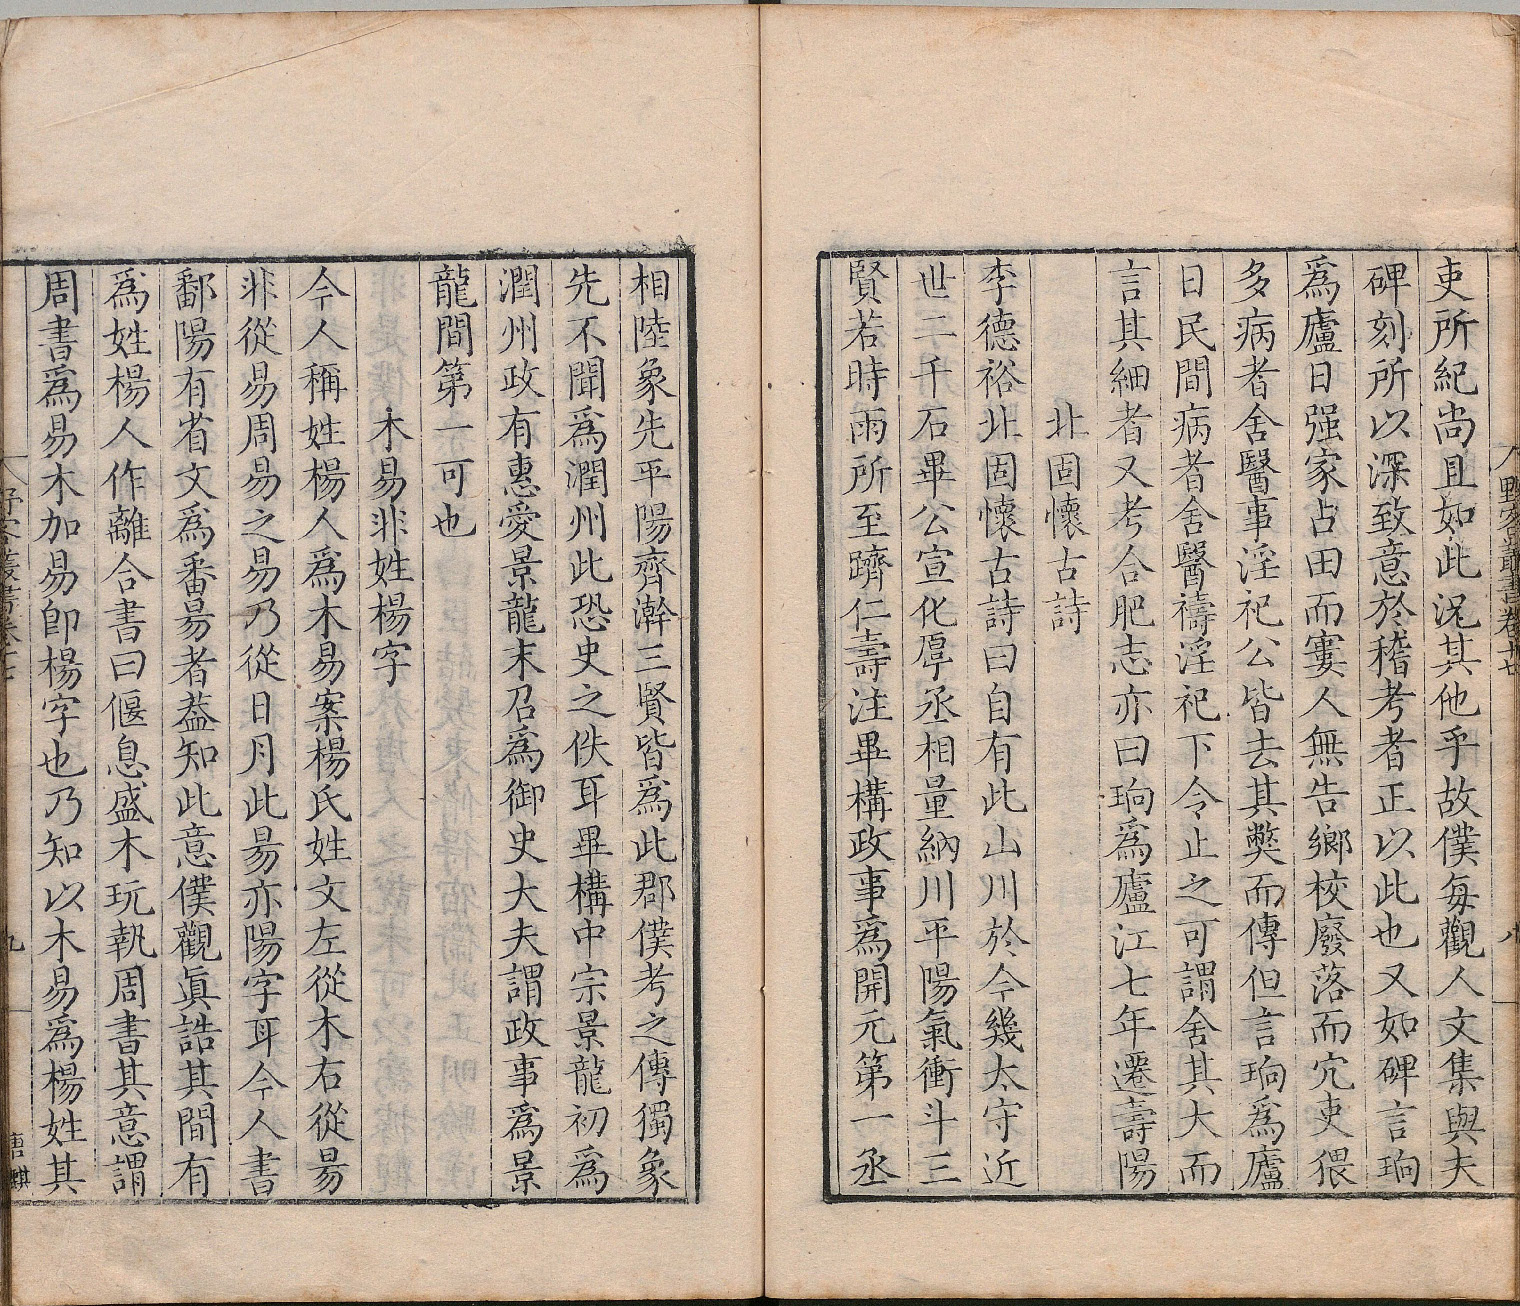 吏所紀尚且如此況其他乎故僕每觀人文集與夫
碑刻所以深致意於稽考者正以此也又如碑言珦
爲廬日强家占田而窶人無告鄉校廢落而宂吏猥
多病者舍醫事淫祀公皆去其獘而傳但言珦爲廬
日民間病者舍醫禱淫祀下令止之可謂舍其大而
言其細者又考合肥志亦曰珦爲廬江七年遷壽陽
北固懷古詩
李德裕北固懷古詩曰自有此山川於今幾太守近
世二千石畢公宣化厚丞相量納川平陽氣衝斗三
賢若時雨所至躋仁壽注畢構政事爲開元第一丞
相陸象先平陽齊澣三賢皆爲此郡僕考之傳獨象
先不聞爲潤州此恐史之佚耳畢構中宗景龍初爲
潤州政有惠愛景龍末召爲御史大夫謂政事爲景
龍間第一可也
木易非姓楊字
今人稱姓楊人爲木易案楊氏姓文左從木右從昜
非從易周易之易乃從日月此昜亦陽字耳今人書
鄱陽有省文爲番昜者蓋知此意僕觀眞誥其間有
爲姓楊人作離合書曰偃息盛木玩執周書其意謂
周書爲易木加易卽楊字也乃知以木易爲楊姓其
野客叢書卷廿七
八
九
唐麒